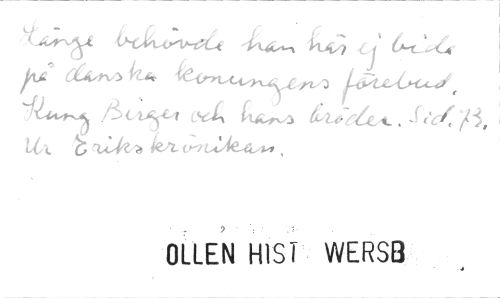 Länge behövde han här ej bida
på danska konungens förebud.
Kung Birger och hans bröder. Sid. 73.
Ur Erikskrönikan.
OLLEN HIST WERSB